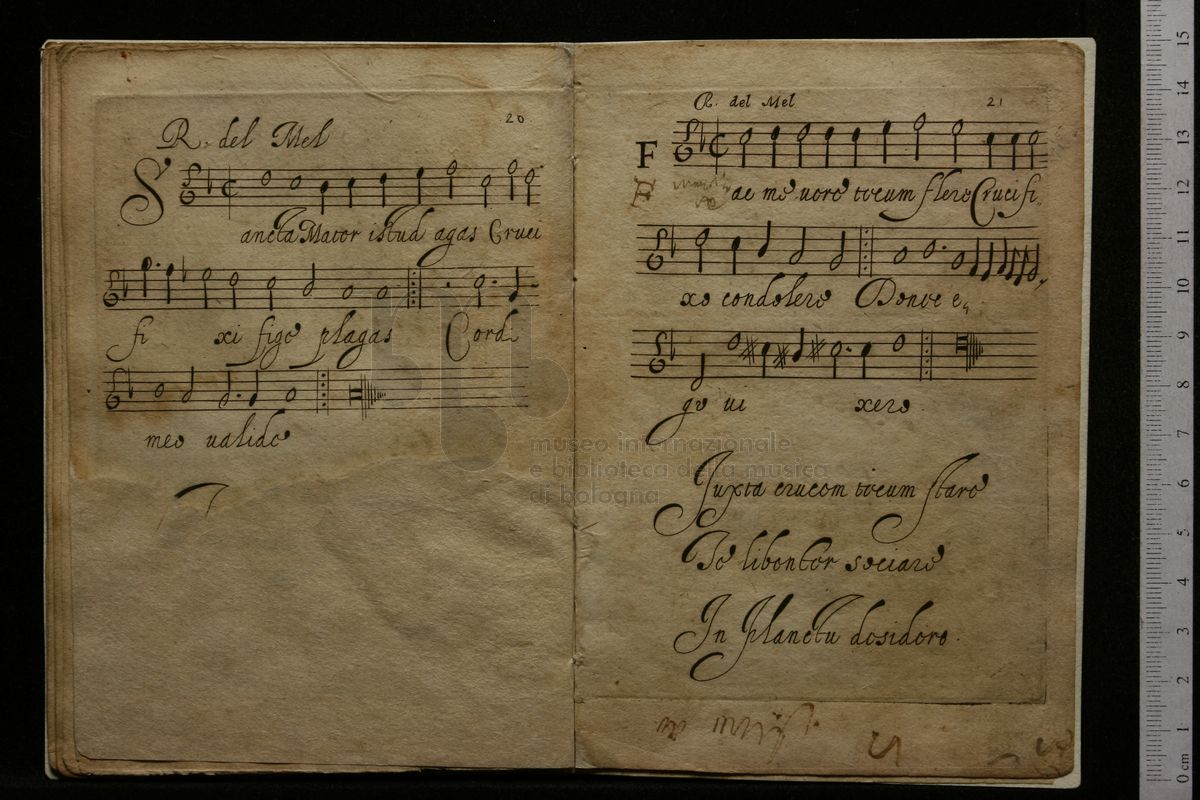 20
R. del Mel
Sancta Mater istud agas Cruci
fi xi fige plagas Cordi
meo valide
21
R. del Mel
F
F ae me vere tecum flere Crucifi
xo condolere Donec e
go vi xero.
Juxta crucem tecum stare
Te libenter sociare
In Planctu desidero.
museo internazionale
e biblioteca della musica
di bologna
0 cm 1 2 3 4 5 6 7 8 9 10 11 12 13 14 15